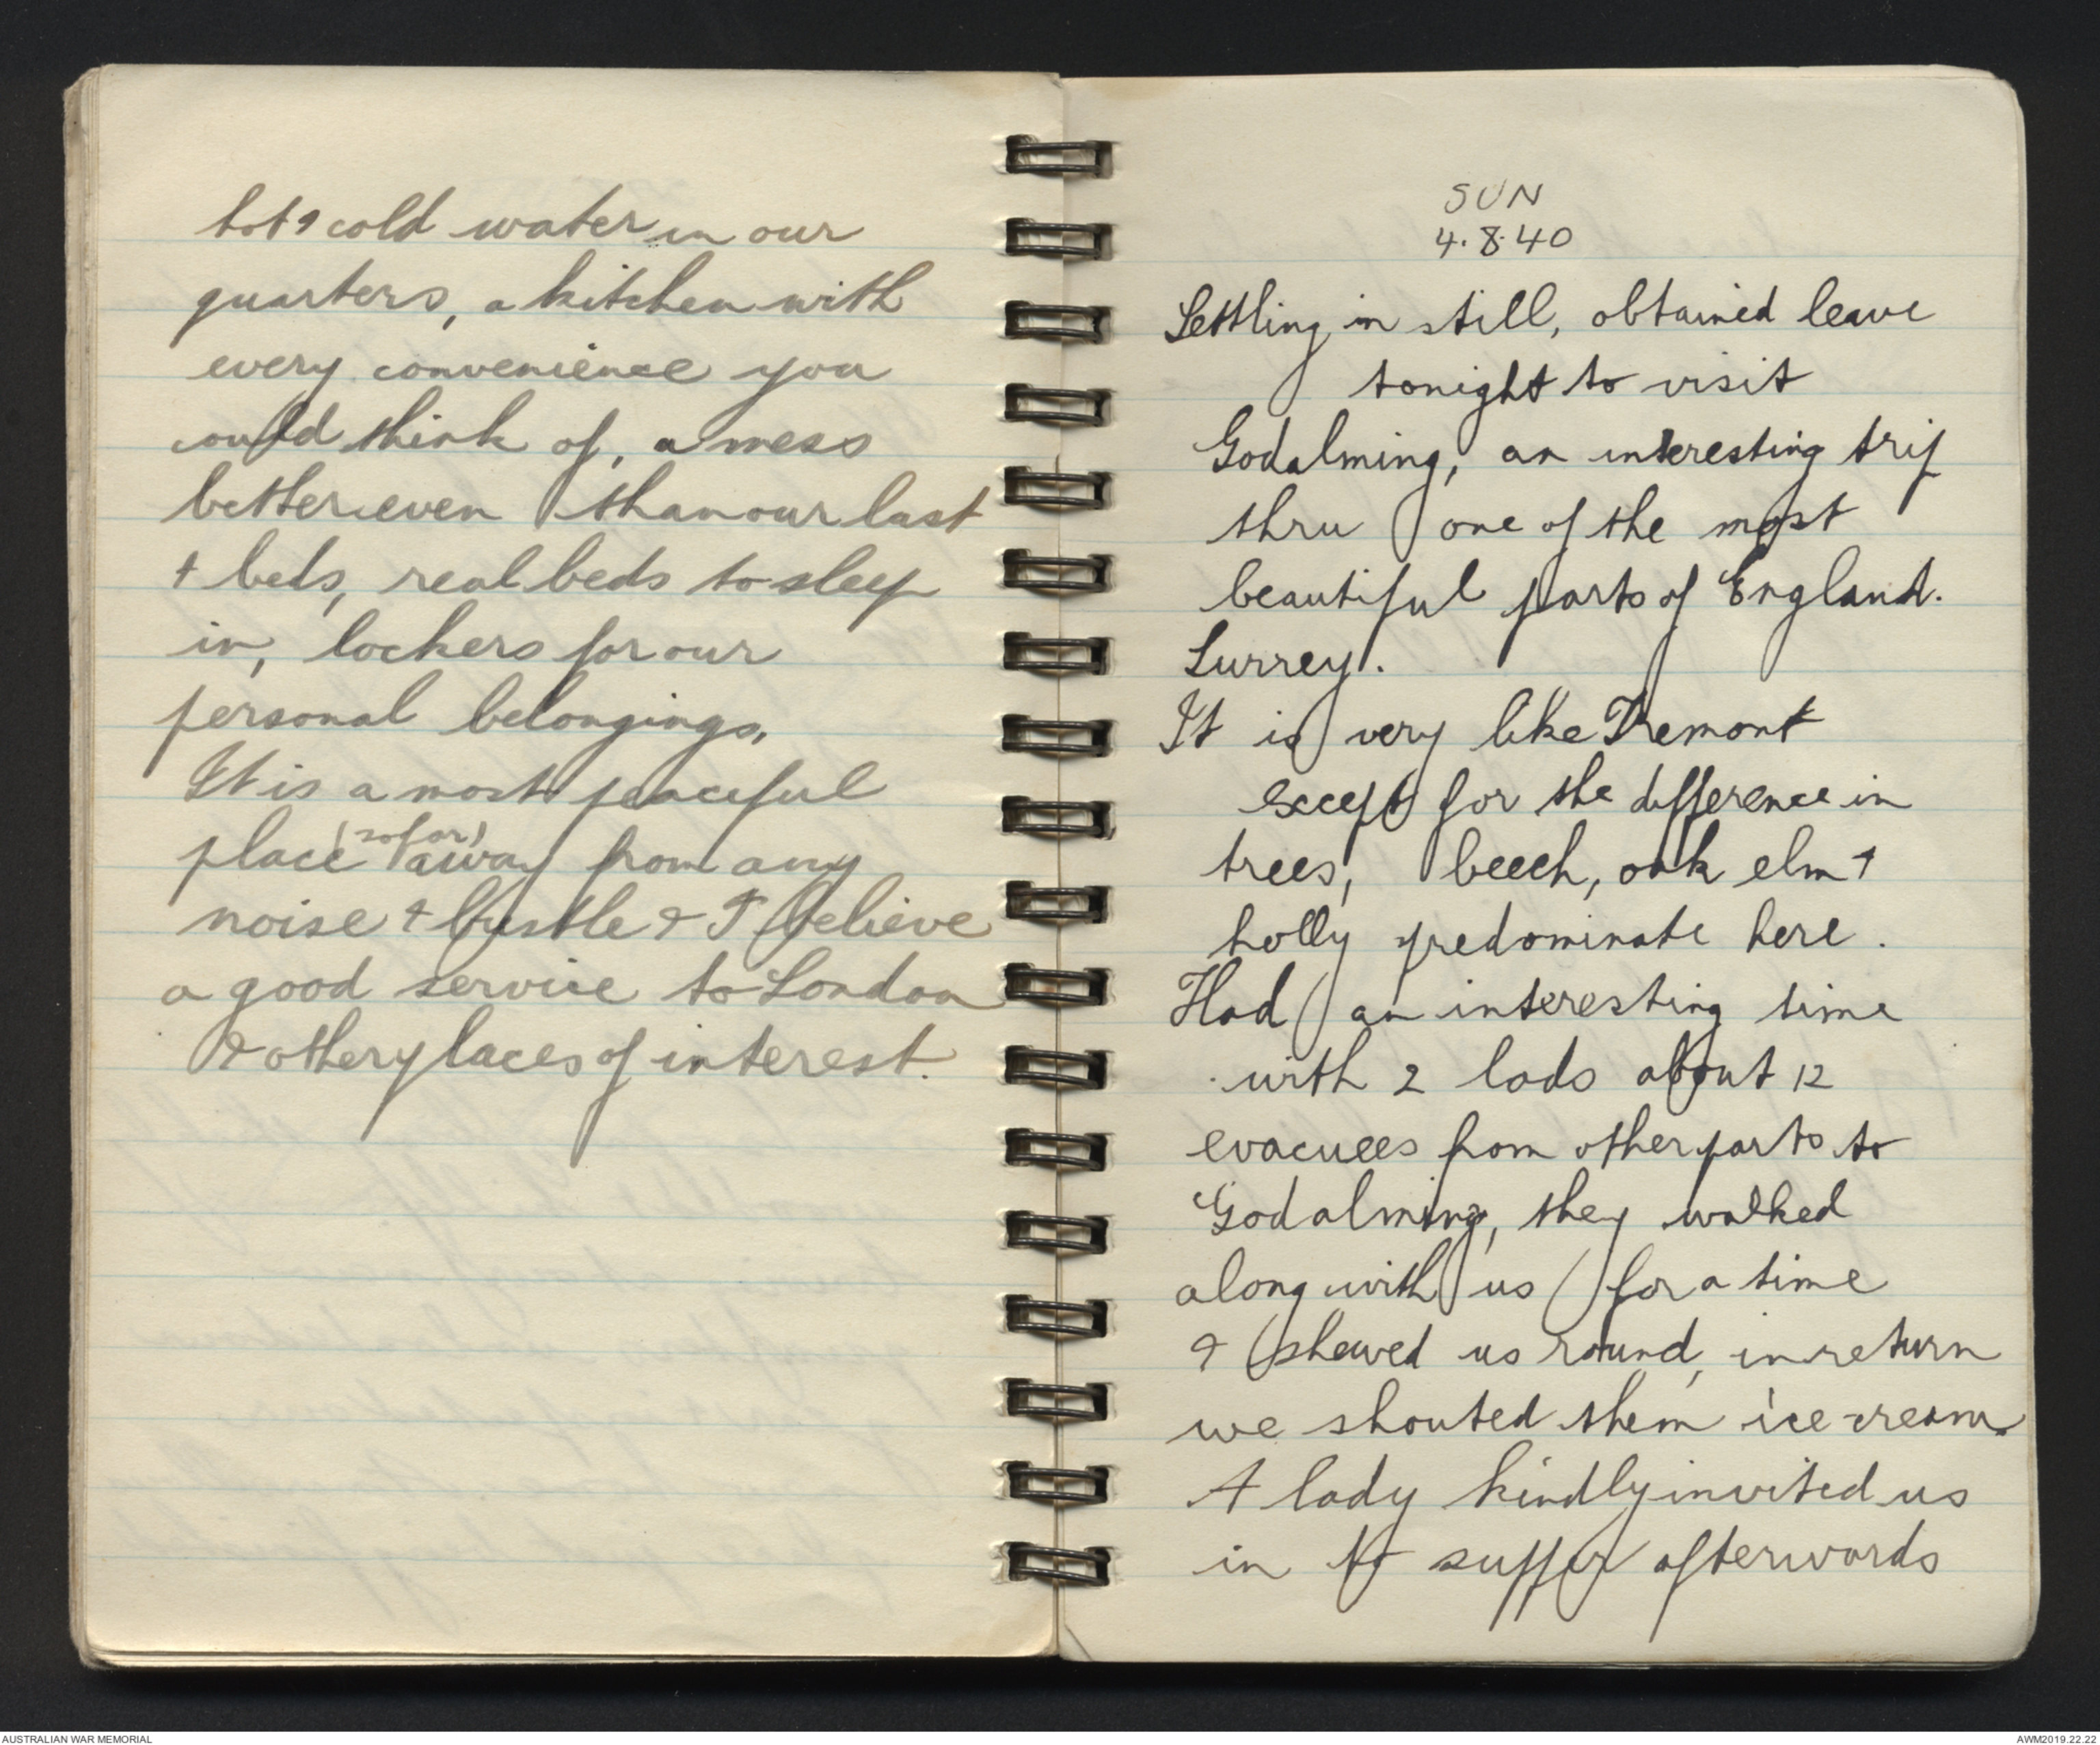 hot & cold water in our
quarters, a kitchen with
every convenience you
could think of, a mess
better even than our last
& beds, real beds to sleep
in, lockers for our
personal belongings,
It is a most peaceful
place (so far) away from any
noise & bustle & I believe
a good service to London
& other places of interest.
SUN
4.8.40
Settling in still, obtained leave
tonight to visit
Godalming, an interesting trip
thru one of the most
beautiful parts of England.
Surrey.
It is very like Tremont
except for the difference in
trees, beech, oak elm &
holly predominate here.
Had an interesting time
with 2 lads about 12
evacuees from other parts to
Godalming, they walked
along with us for a time
& shewed us round, in return
we shouted them ice cream.
A lady kindly invited us
in to supper afterwards
AUSTRALIAN WAR MEMORIAL
AWM2019.22.22